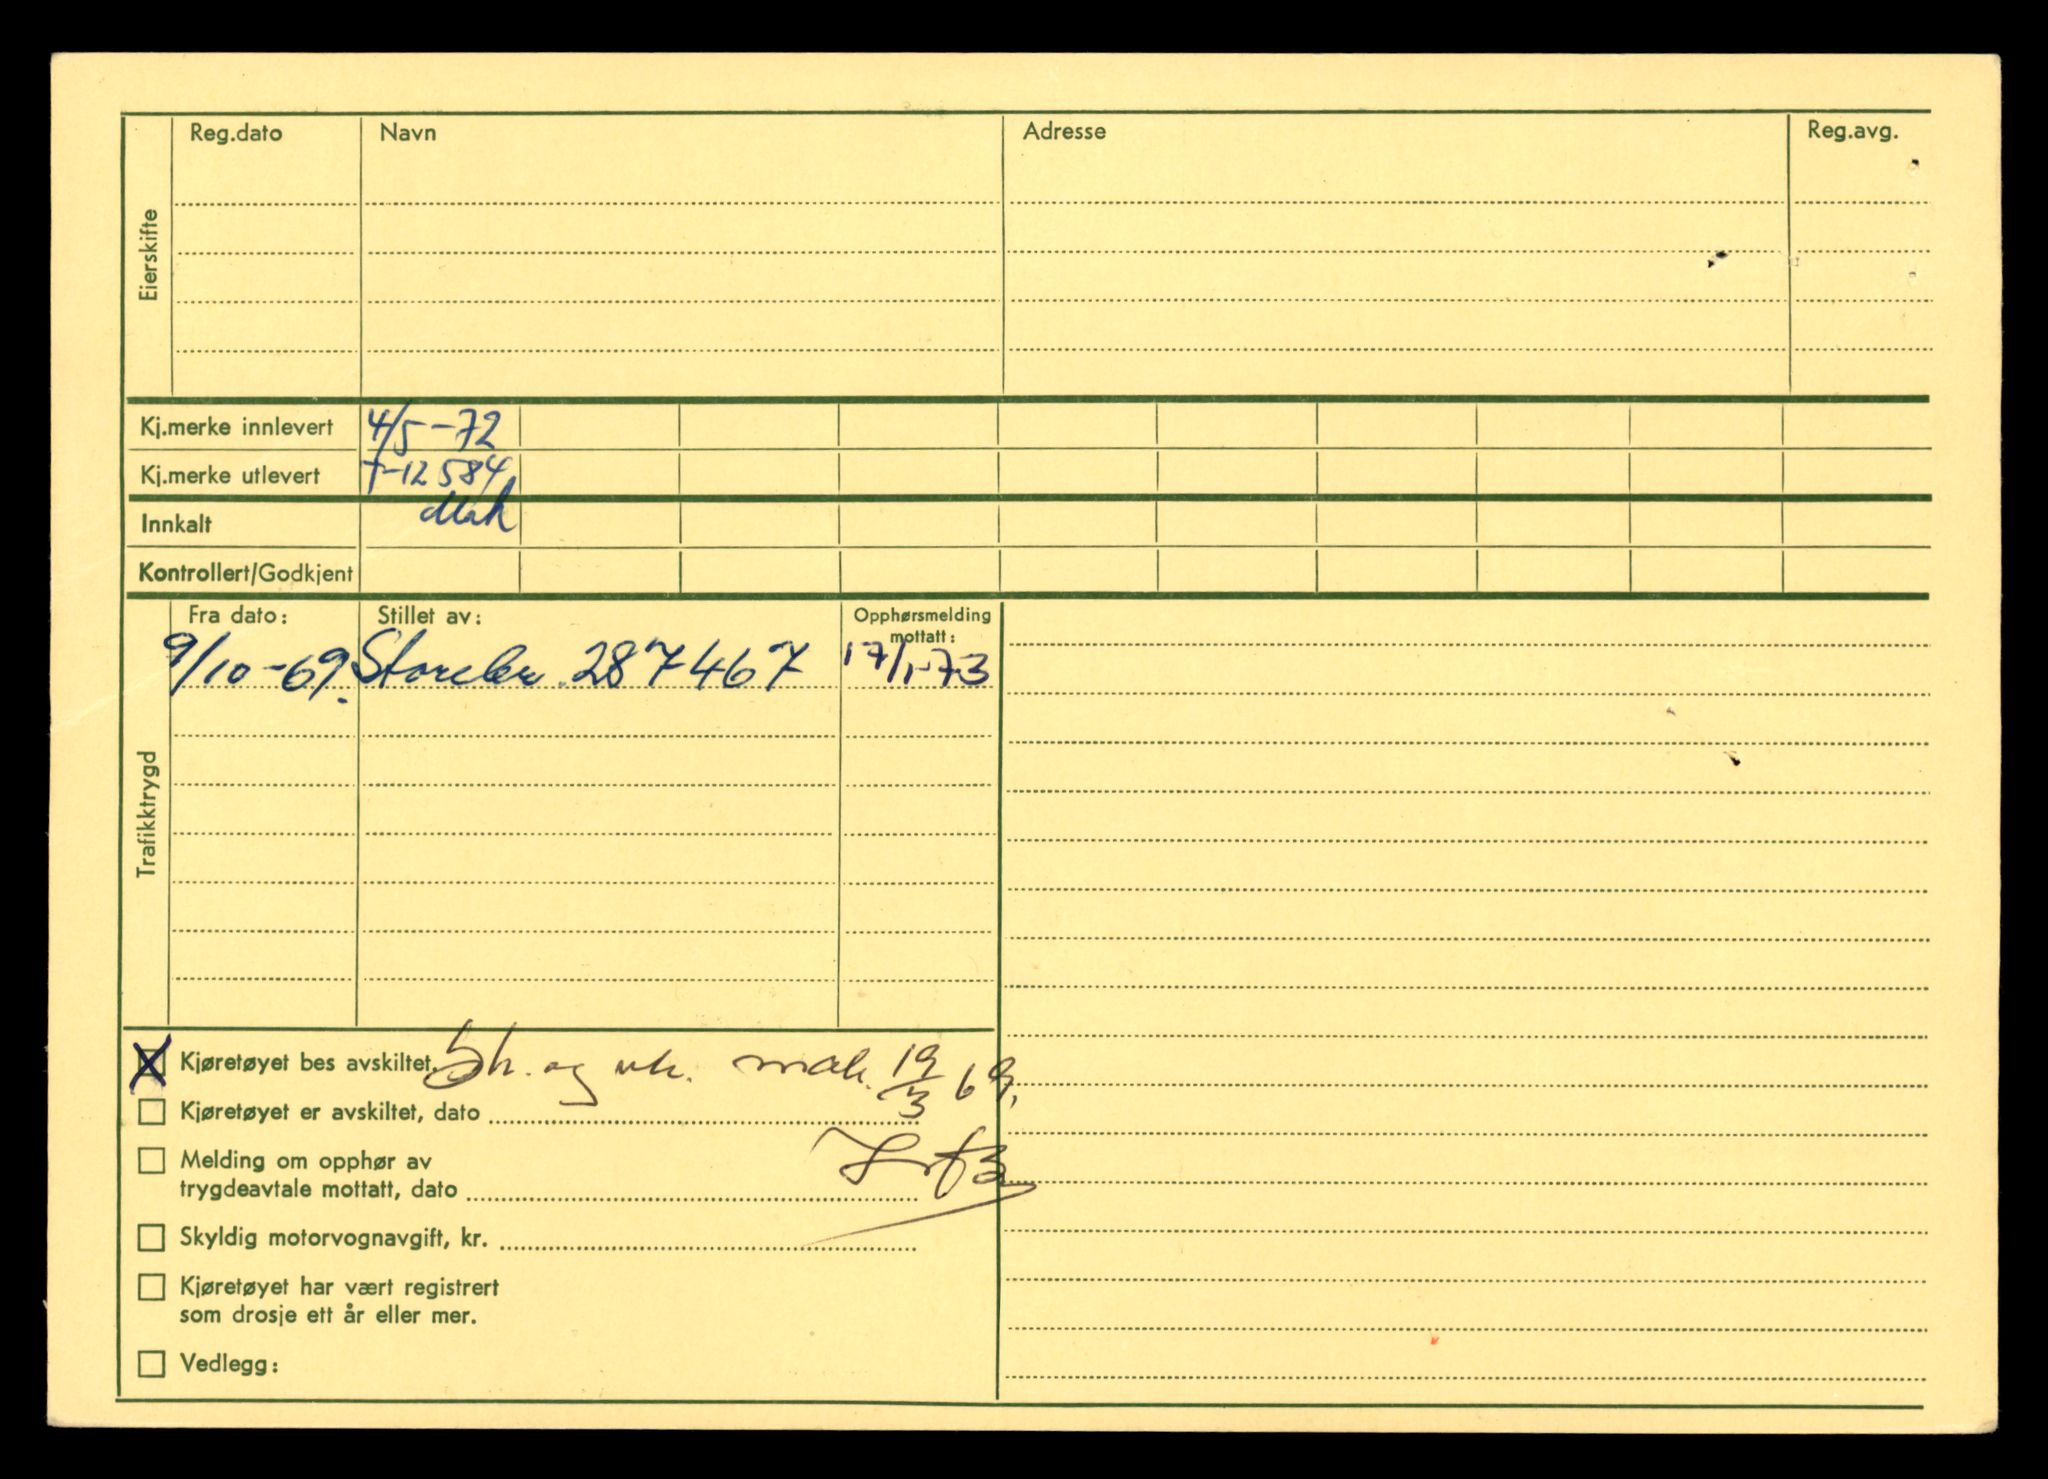 Reg.dato Navn Adresse Reg.avg.
Eierskifte
Kj.merke innlevert 4/5-72
Kj.merke utlevert T-12584
Innkalt
Kontrollert/Godkjent
Fra dato: Stillet av: Opphørsmelding
mottatt:
9/10-69. Storebr. 287467 17/1-73
Trafikktrygd
X Kjøretøyet bes avskiltet. og vk. mak. 19/3 69.
Kjøretøyet er avskiltet, dato
Melding om opphør av
trygdeavtale mottatt, dato
Skyldig motorvognavgift, kr.
Kjøretøyet har vært registrert
som drosje ett år eller mer.
Vedlegg: